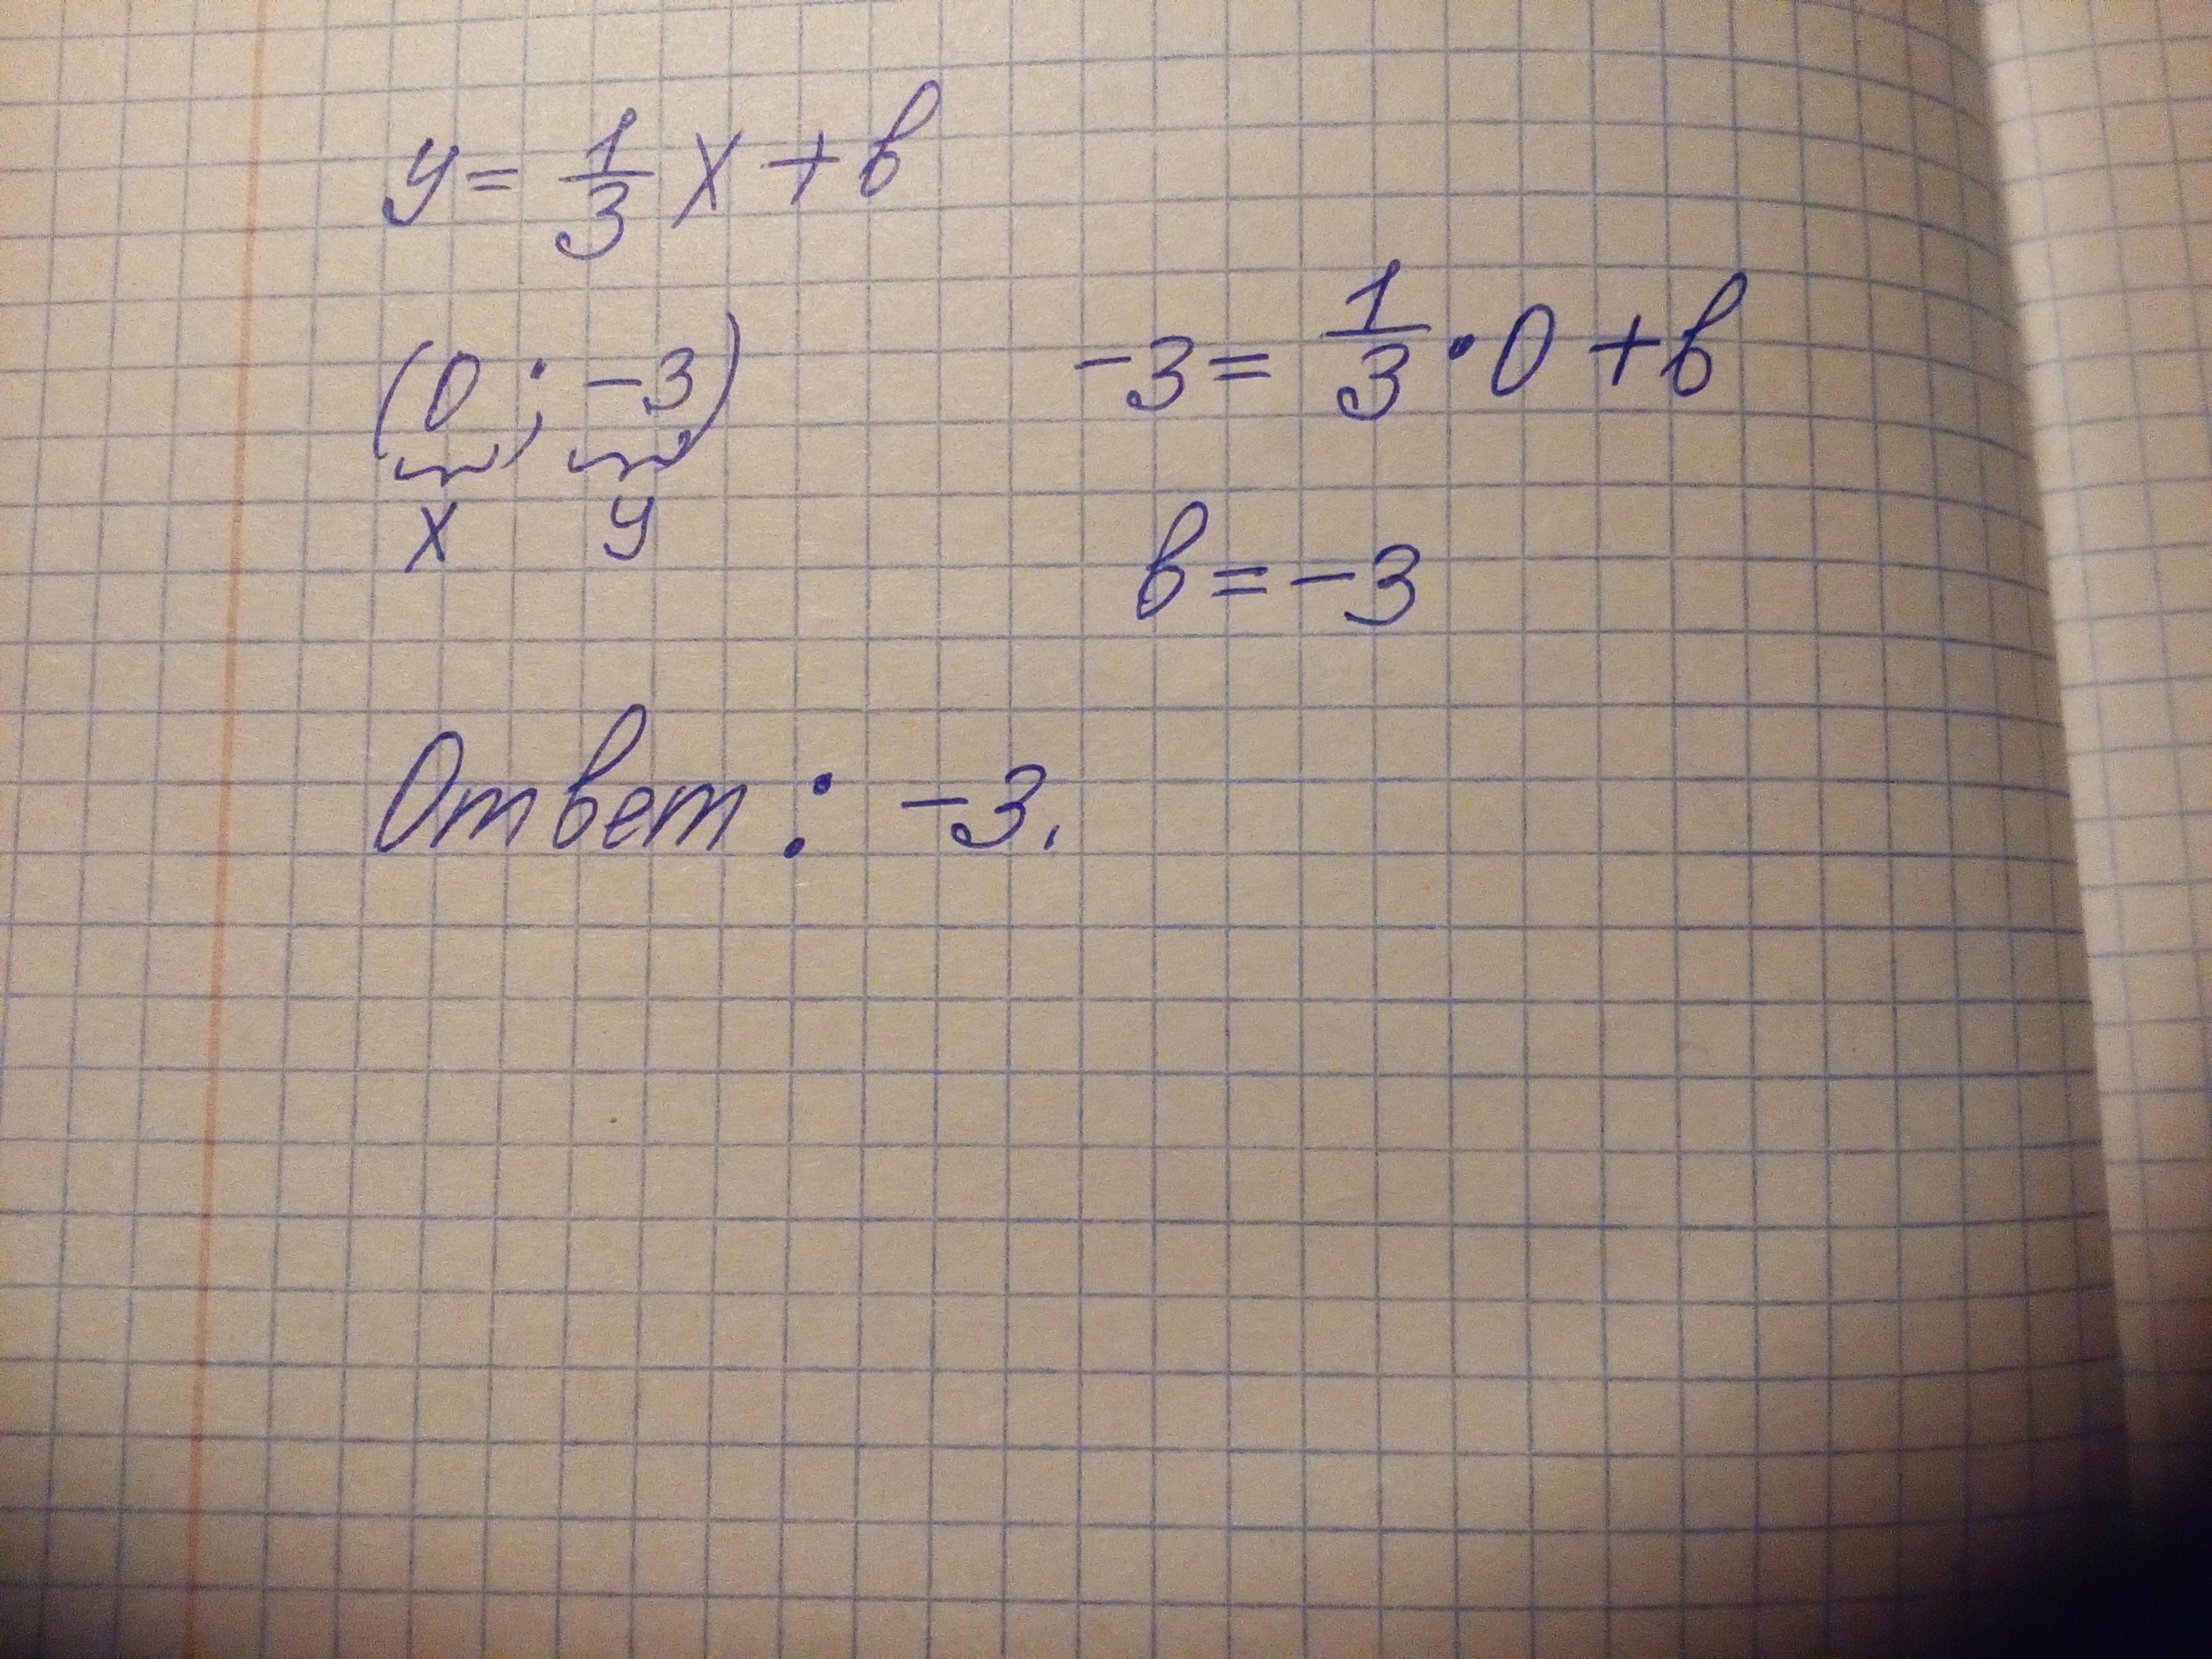 y = 1/3 x + b
(0 ; -3)
x y
-3 = 1/3 · 0 + b
b = -3
Ответ: -3.